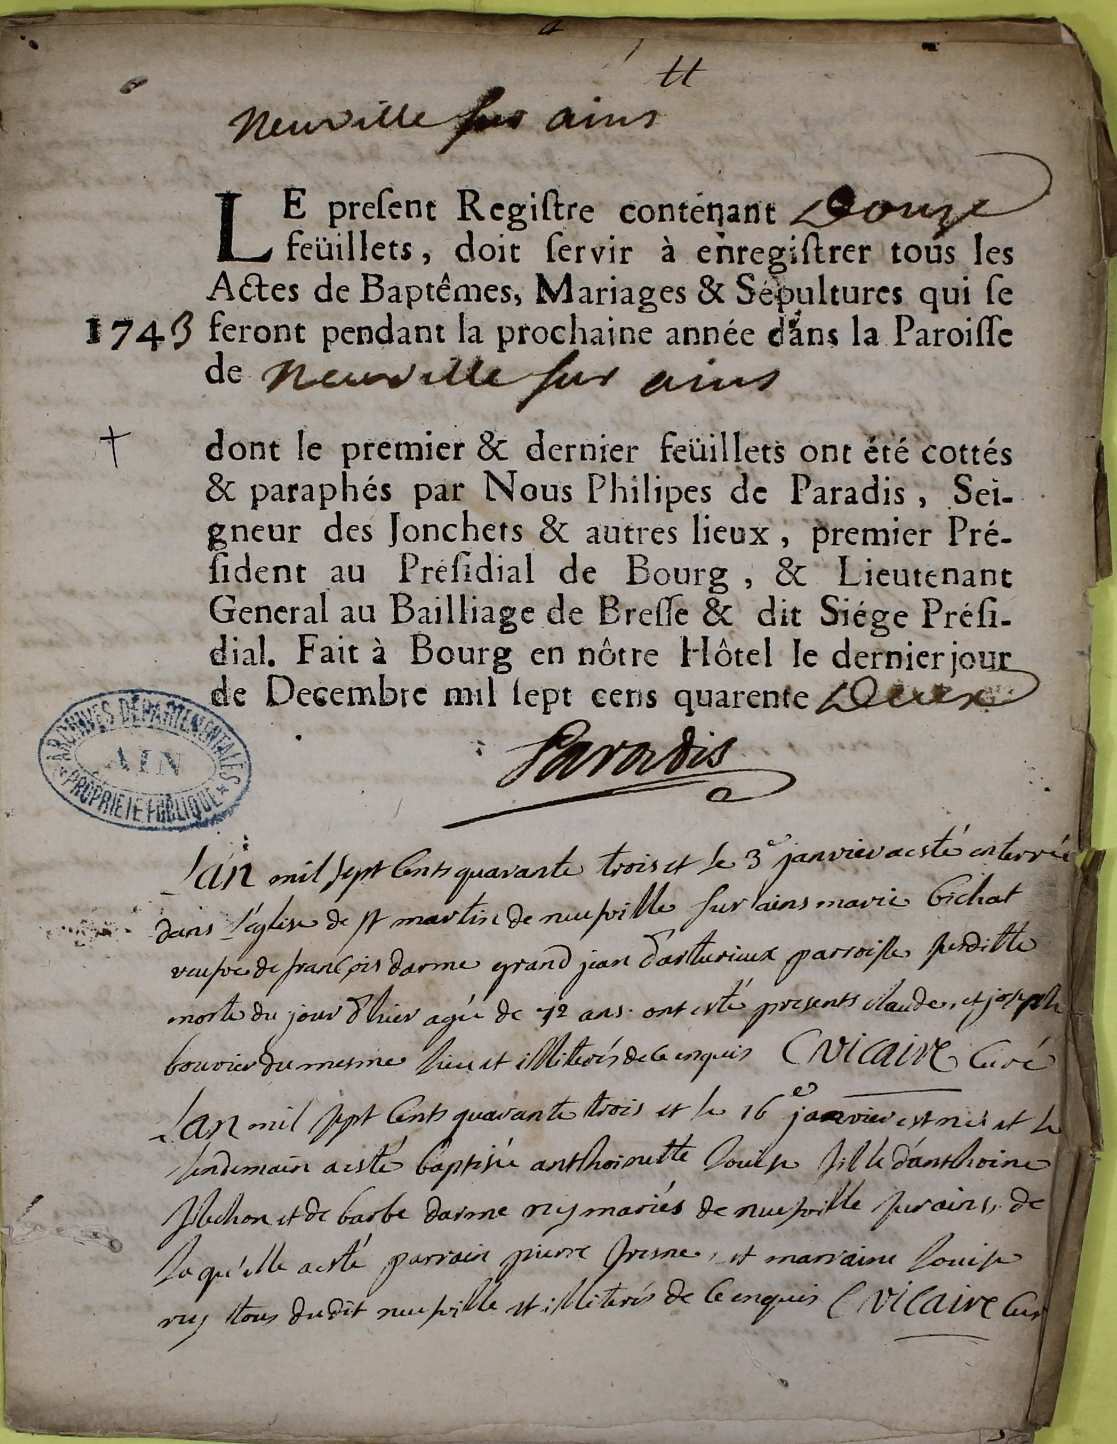 Neuville sur ains
LE preſent Regiſtre contenant Douze
feüillets, doit ſervir à enregiſtrer tous les
Actes de Baptêmes, Mariages & Sépultures qui ſe
1743 feront pendant la prochaine année dans la Paroiſſe
de Neuville sur ains
dont le premier & dernier feüillets ont été cottés
& paraphés par Nous Philipes de Paradis, Sei-
gneur des Jonchets & autres lieux, premier Pré-
ſident au Préſidial de Bourg, & Lieutenant
General au Bailliage de Breſſe & dit Siége Préſi-
dial. Fait à Bourg en nôtre Hôtel le dernier jour
de Decembre mil ſept cens quarente Deux
Paradis
ARCHIVES DÉPARTEMENTALES
AIN
PROPRIÉTÉ PUBLIQUE
Lan mil sept Cents quarante trois et le 3e janvier a esté enterrée
dans l'église de st martin de neufville sur ains marie bichat
veufve de françois darme grand jean d'arturieux parroisse susditte
morte du jour d'hier agée de 72 ans. ont esté presents claude, et joseph
bouvier du mesme lieu et illiterés de ce enquis C VICAIRE Curé
Lan mil sept Cents quarante trois et le 16e janvier est née et le
lendemain a esté baptisée anthoinette louise fille d'anthoine
et de barbe darme mariés de neufville sur ains, de
laquelle a esté parrain pierre fresne, et marraine louise
tous dudit neufville et illiterés de ce enquis C VICAIRE Cur